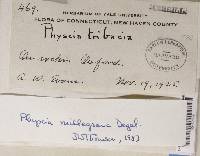 469.
HERBARIUM OF YALE UNIVERSITY
FLORA OF CONNECTICUT, NEW HAVEN COUNTY
Physcia tribacia
On rocks, Oxford.
A. W. Evans. Nov. 19, 1925
Physcia millegrana Degel.
1983